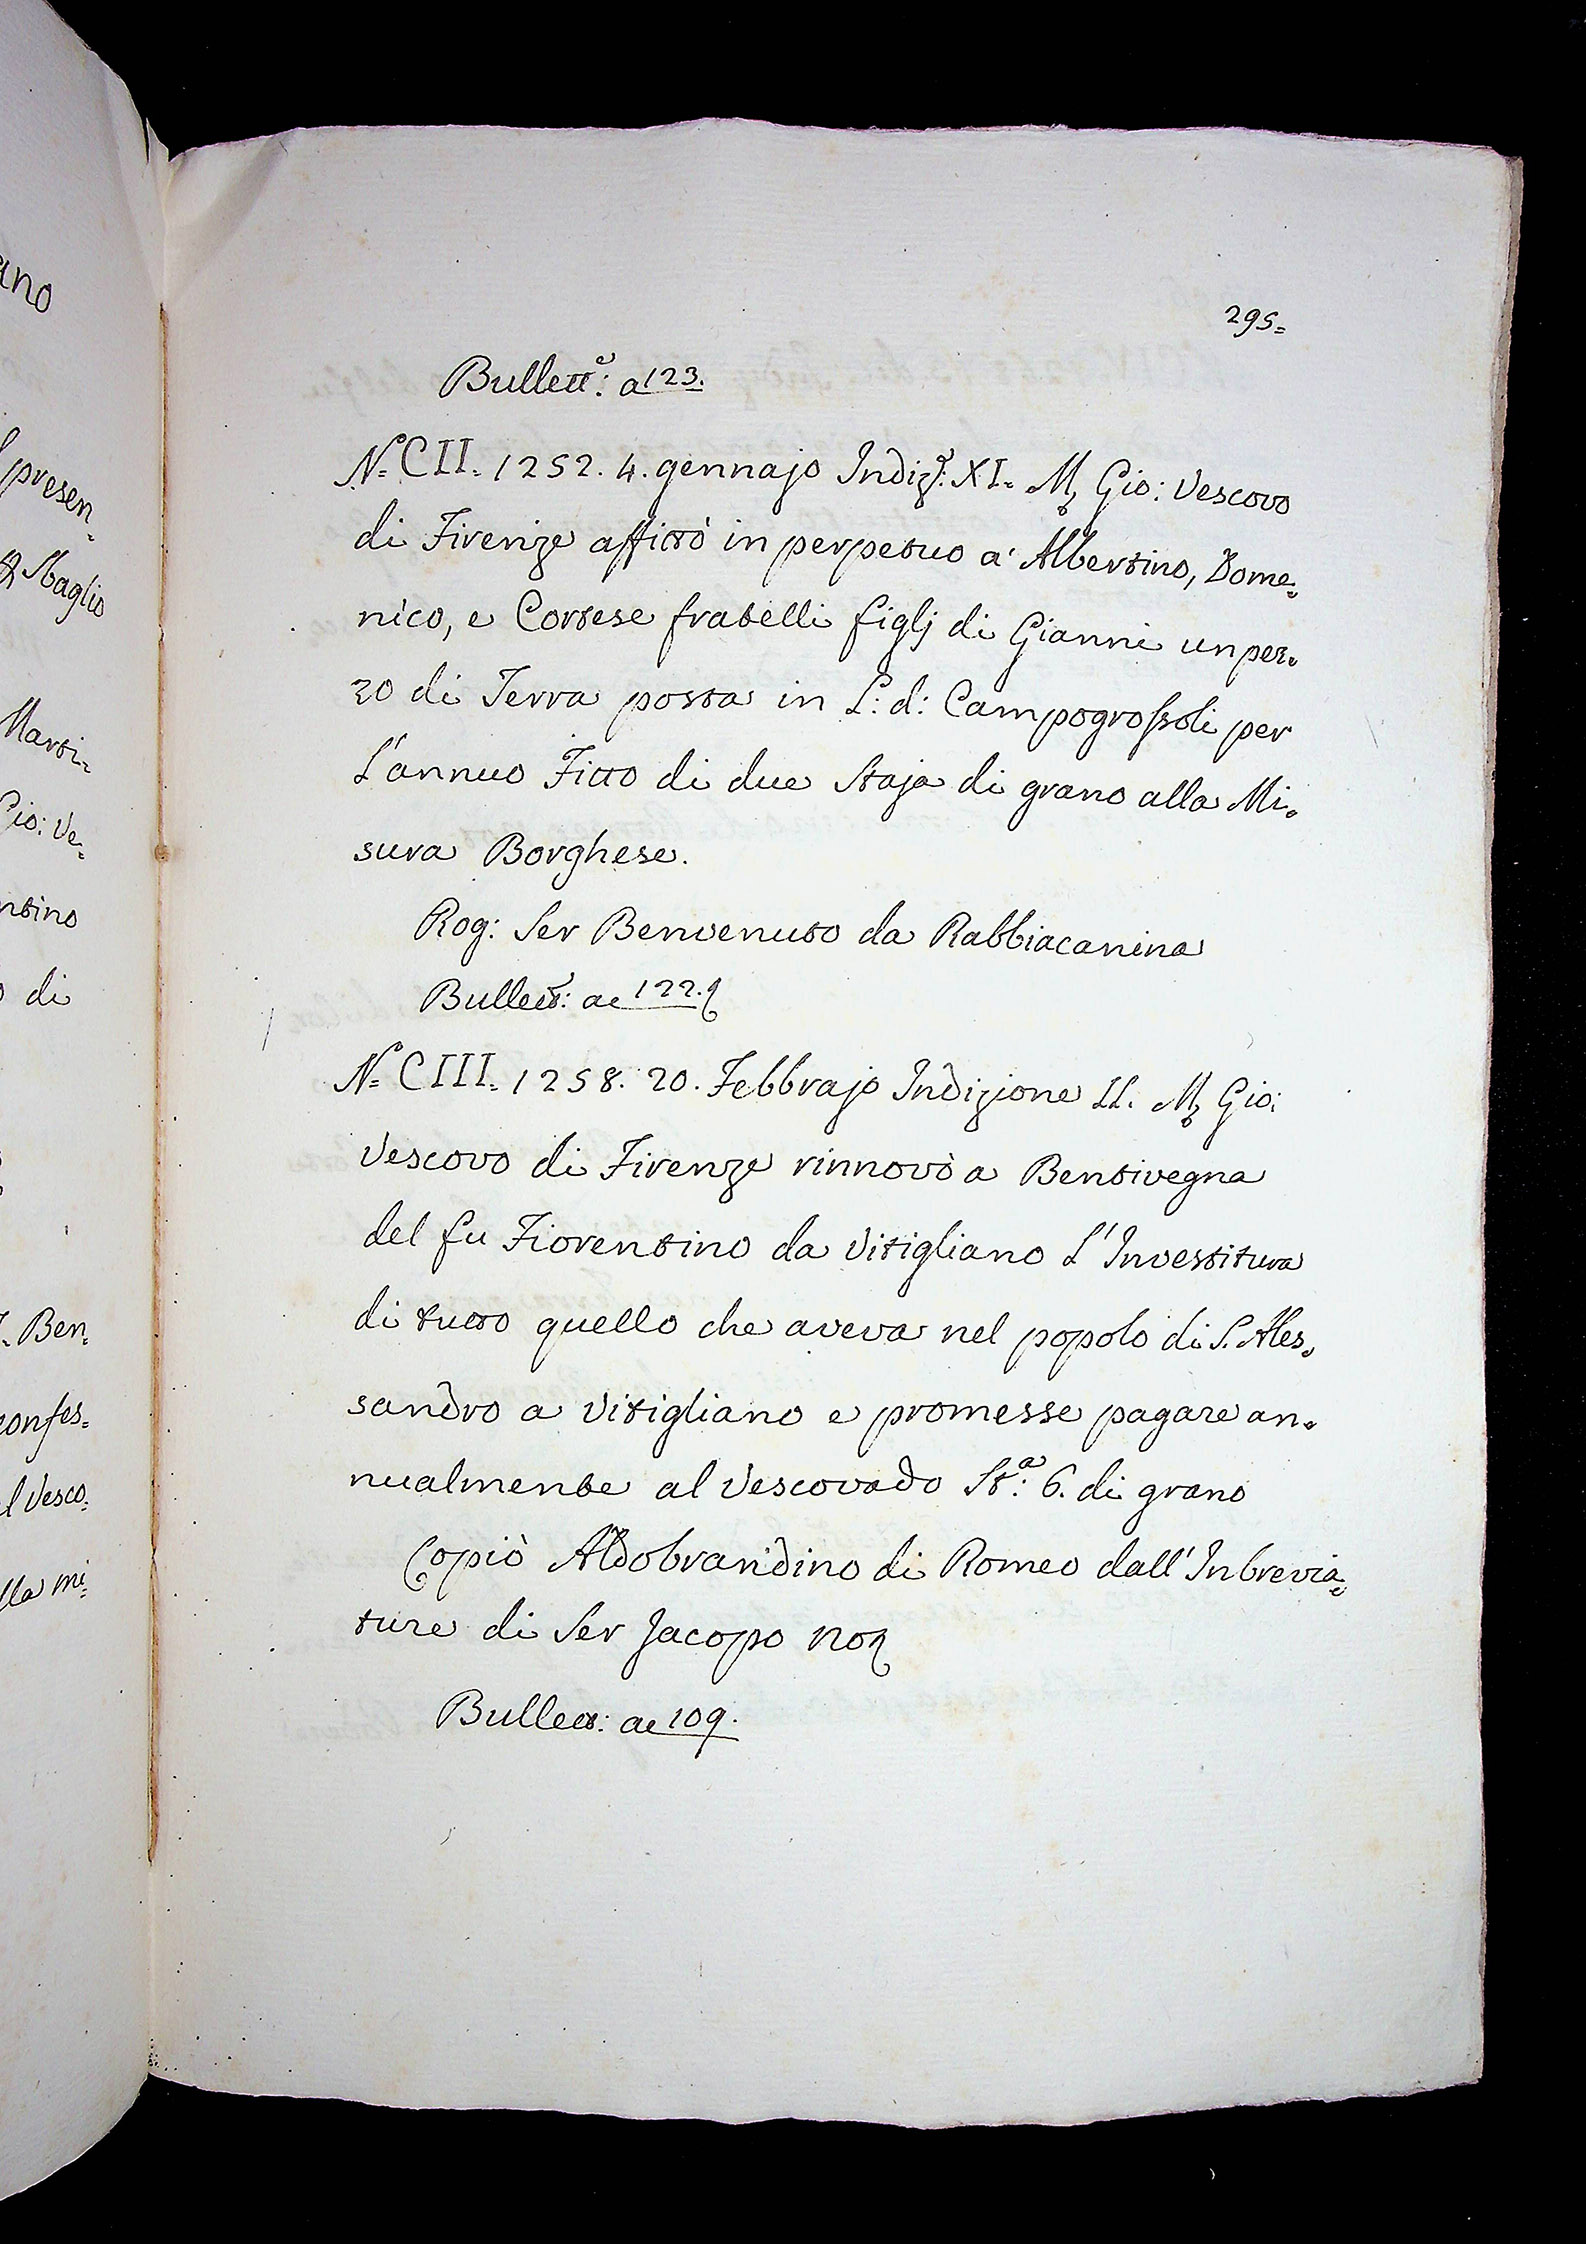 ano
presen=
Sbaglio
Marti=
Gio: Ve=
ntino
di
Ben=
confes=
l Vesco=
lla mi=
295=
Bullett.e: a 123.
N.° CII. 1252. 4. gennajo Indiz.e: XI. M. Gio: Vescovo
di Firenze affittò in perpetuo a' Albertino, Dome=
nico, e Cortese fratelli figlj di Gianni un pez=
zo di Terra posta in L: d: Campogrossoli per
L'annuo Fitto di due Staja di grano alla Mi=
sura Borghese.
Rog: Ser Benvenuto da Rabbiacanina
Bullett: ac 122.
N.° CIII. 1258. 20. Febbrajo Indizione II. M. Gio:
Vescovo di Firenze rinnovò a Bentivegna
del fu Fiorentino da Vitigliano L'Investitura
di tutto quello che aveva nel popolo di S. Ales=
sandro a Vitigliano e promesse pagare an=
nualmente al Vescovado St.a: 6. di grano
Copiò Aldobrandino di Romeo dall'Inbrevia=
ture di Ser Jacopo No
Bullett: ac 109.